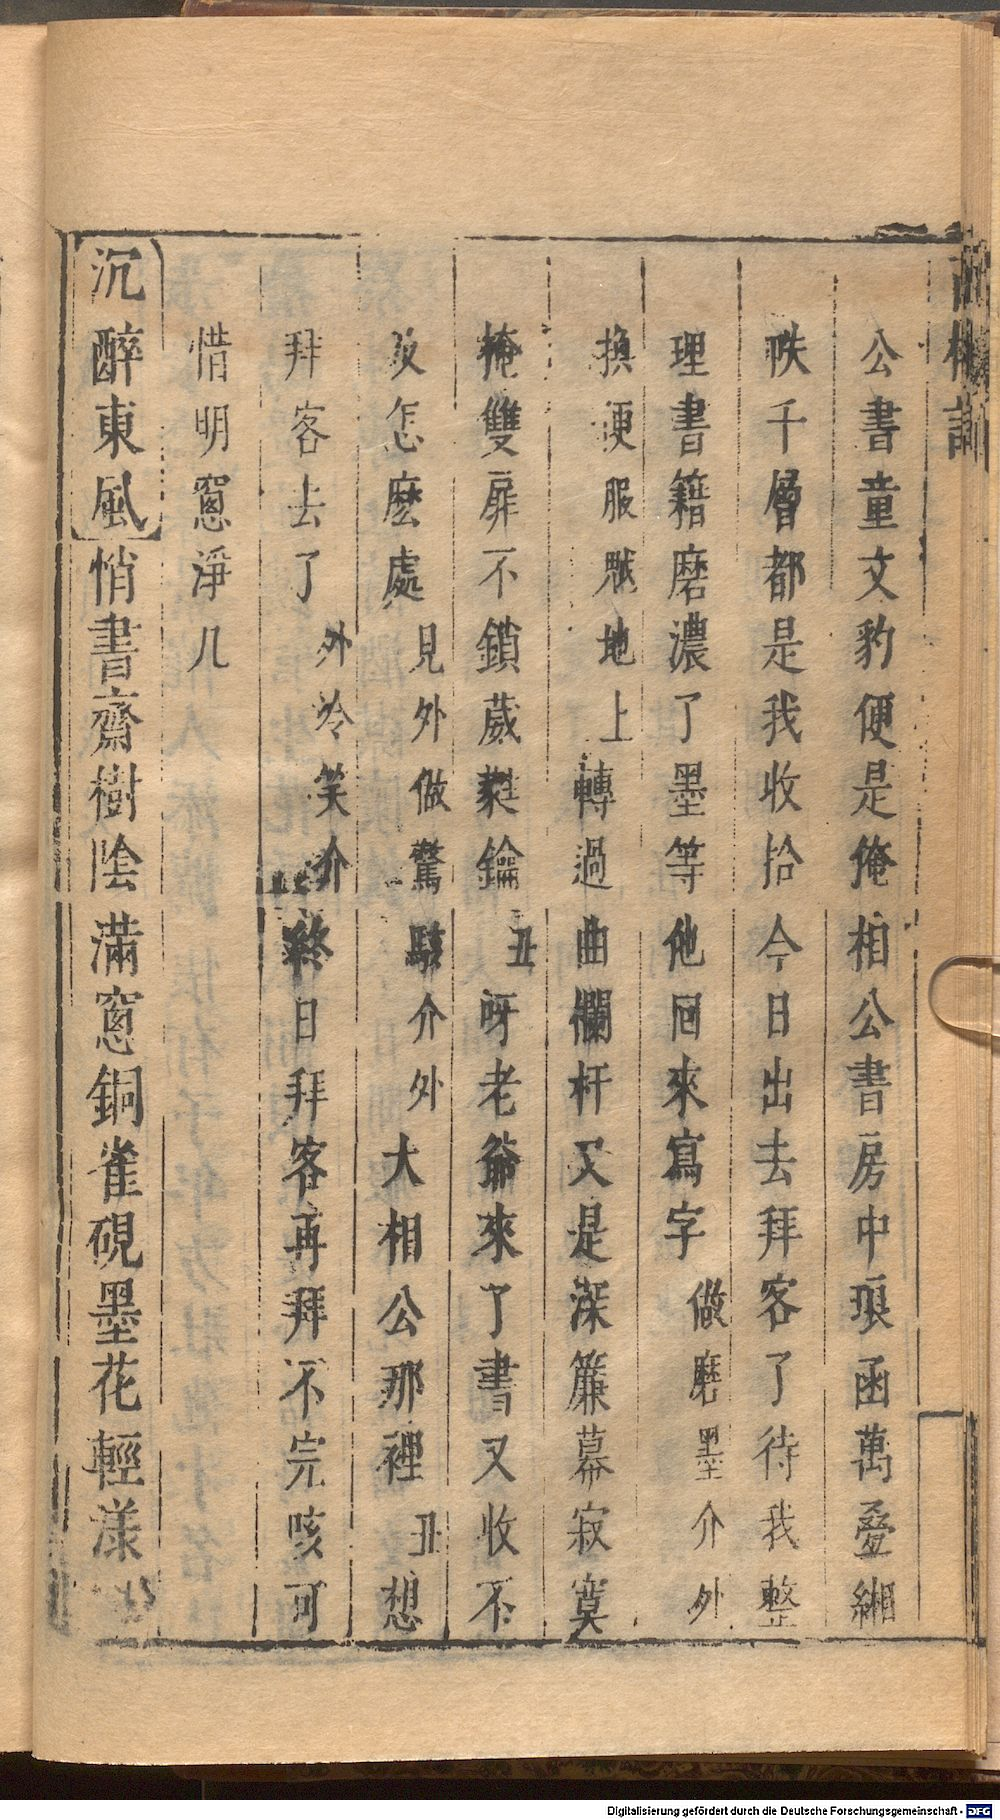 公書童文豹便是俺相公書房中琅函萬叠緗
帙千層都是我收拾今日出去拜客了待我整
理書籍磨濃了墨等他囘來寫字做磨墨介外
換便服默地上轉過曲欄杆又是深簾幕寂寞
掩雙扉不鎖葳蕤鑰丑呀老爺來了書又收不
及怎麽處見外做驚駭介外大相公那裡丑想
拜客去了外冷笑介終日拜客再拜不完咳可
惜明窓淨几
沉醉東風悄書齋樹陰滿窓銅雀硯墨花輕漾
Digitalisierung gefördert durch die Deutsche Forschungsgemeinschaft - DFG